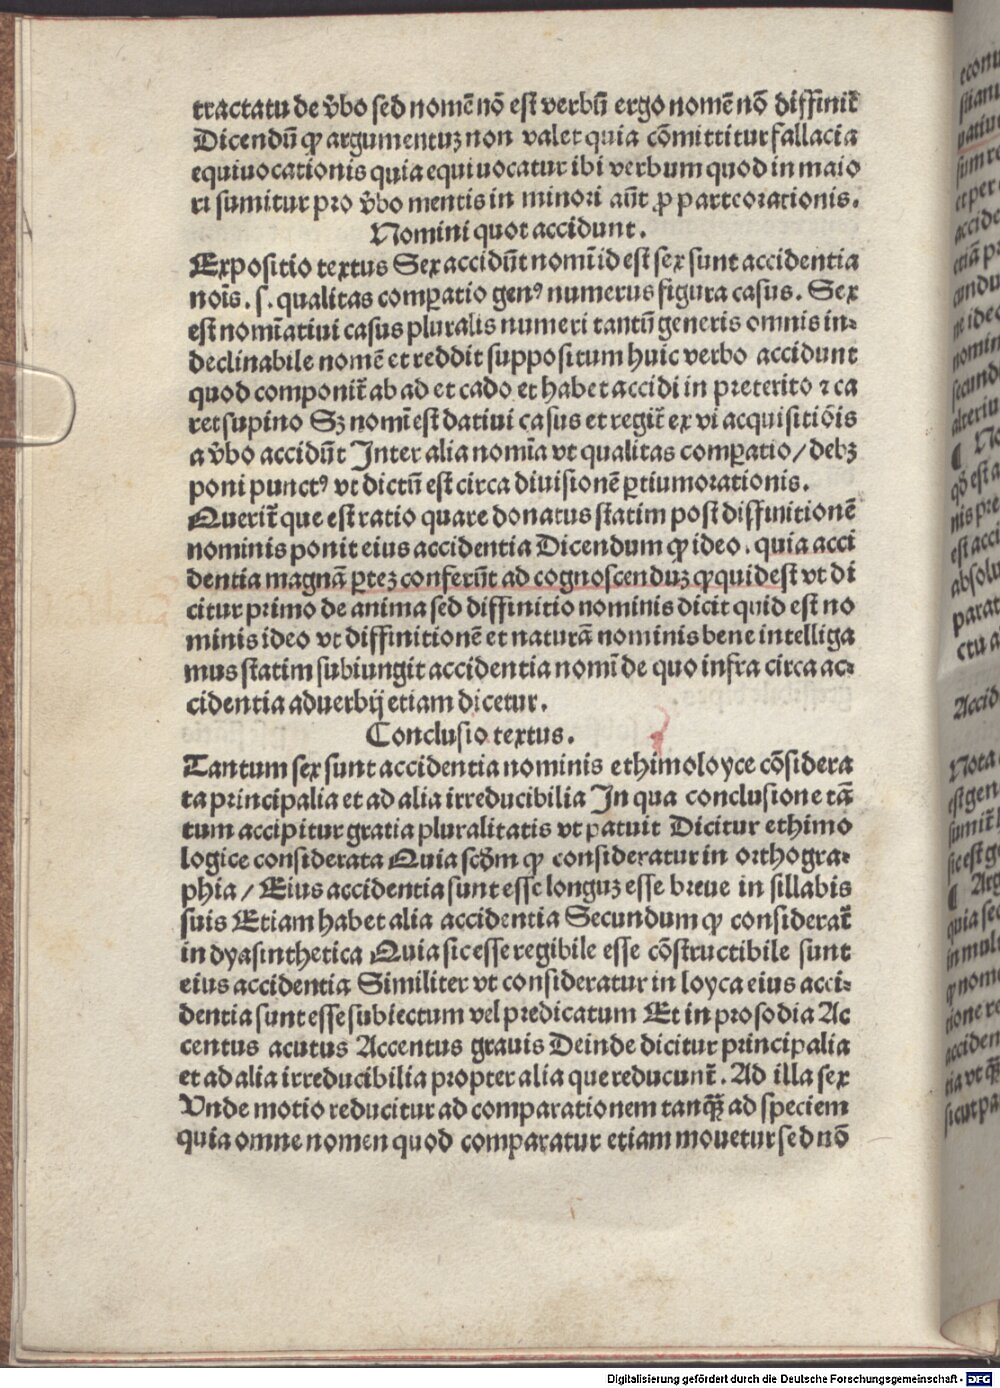 tractatu de v̄bo sed nomē nō est verbū ergo nomē nō diffinit̄
Dicendū ꝙ argumentuꝫ non valet quia cōmittitur fallacia
equiuocationis quia equiuocatur ibi verbum quod in maio
ri sumitur pro v̄bo mentis in minori aūt ꝓ parte orationis.
Nomini quot accidunt.
Expositio textus Sex accidūt nomīi id est sex sunt accidentia
noīs. s. qualitas comꝑatio genꝰ numerus figura casus. Sex
est nomīatiui casus pluralis numeri tantū generis omnis in-
declinabile nomē et reddit suppositum huic verbo accidunt
quod componit̄ ab ad et cado et habet accidi in preterito ⁊ ca
ret supino Sꝫ nomī est datiui casus et regit̄ ex vi acquisitiōis
a v̄bo accidūt Inter alia nomīa vt qualitas comꝑatio/ debꝫ
poni punctꝰ vt dictū est circa diuisionē ꝑtium orationis.
Querit̄ que est ratio quare donatus statim post diffinitionē
nominis ponit eius accidentia Dicendum ꝙ ideo. quia acci
dentia magnā ꝑteꝫ conferūt ad cognoscenduꝫ ꝙ quid est vt di
citur primo de anima sed diffinitio nominis dicit quid est no
minis ideo vt diffinitionē et naturā nominis bene intelliga
mus statim subiungit accidentia nomī de quo infra circa ac-
cidentia aduerbij etiam dicetur.
Conclusio textus.
Tantum sex sunt accidentia nominis ethimoloyce cōsidera
ta principalia et ad alia irreducibilia In qua conclusione tā
tum accipitur gratia pluralitatis vt patuit Dicitur ethimo
logice considerata Quia scd̄m ꝙ consideratur in orthogra-
phia / Eius accidentia sunt esse longuꝫ esse breue in sillabis
suis Etiam habet alia accidentia Secundum ꝙ considerat̄
in dyasinthetica Quia sic esse regibile esse cōstructibile sunt
eius accidentia Similiter vt consideratur in loyca eius acci-
dentia sunt esse subiectum vel predicatum Et in prosodia Ac
centus acutus Accentus grauis Deinde dicitur principalia
et ad alia irreducibilia propter alia que reducunt̄. Ad illa sex
Vnde motio reducitur ad comparationem tanq̄ꝫ ad speciem
quia omne nomen quod comparatur etiam mouetur sed nō
Digitalisierung gefördert durch die Deutsche Forschungsgemeinschaft - DFG